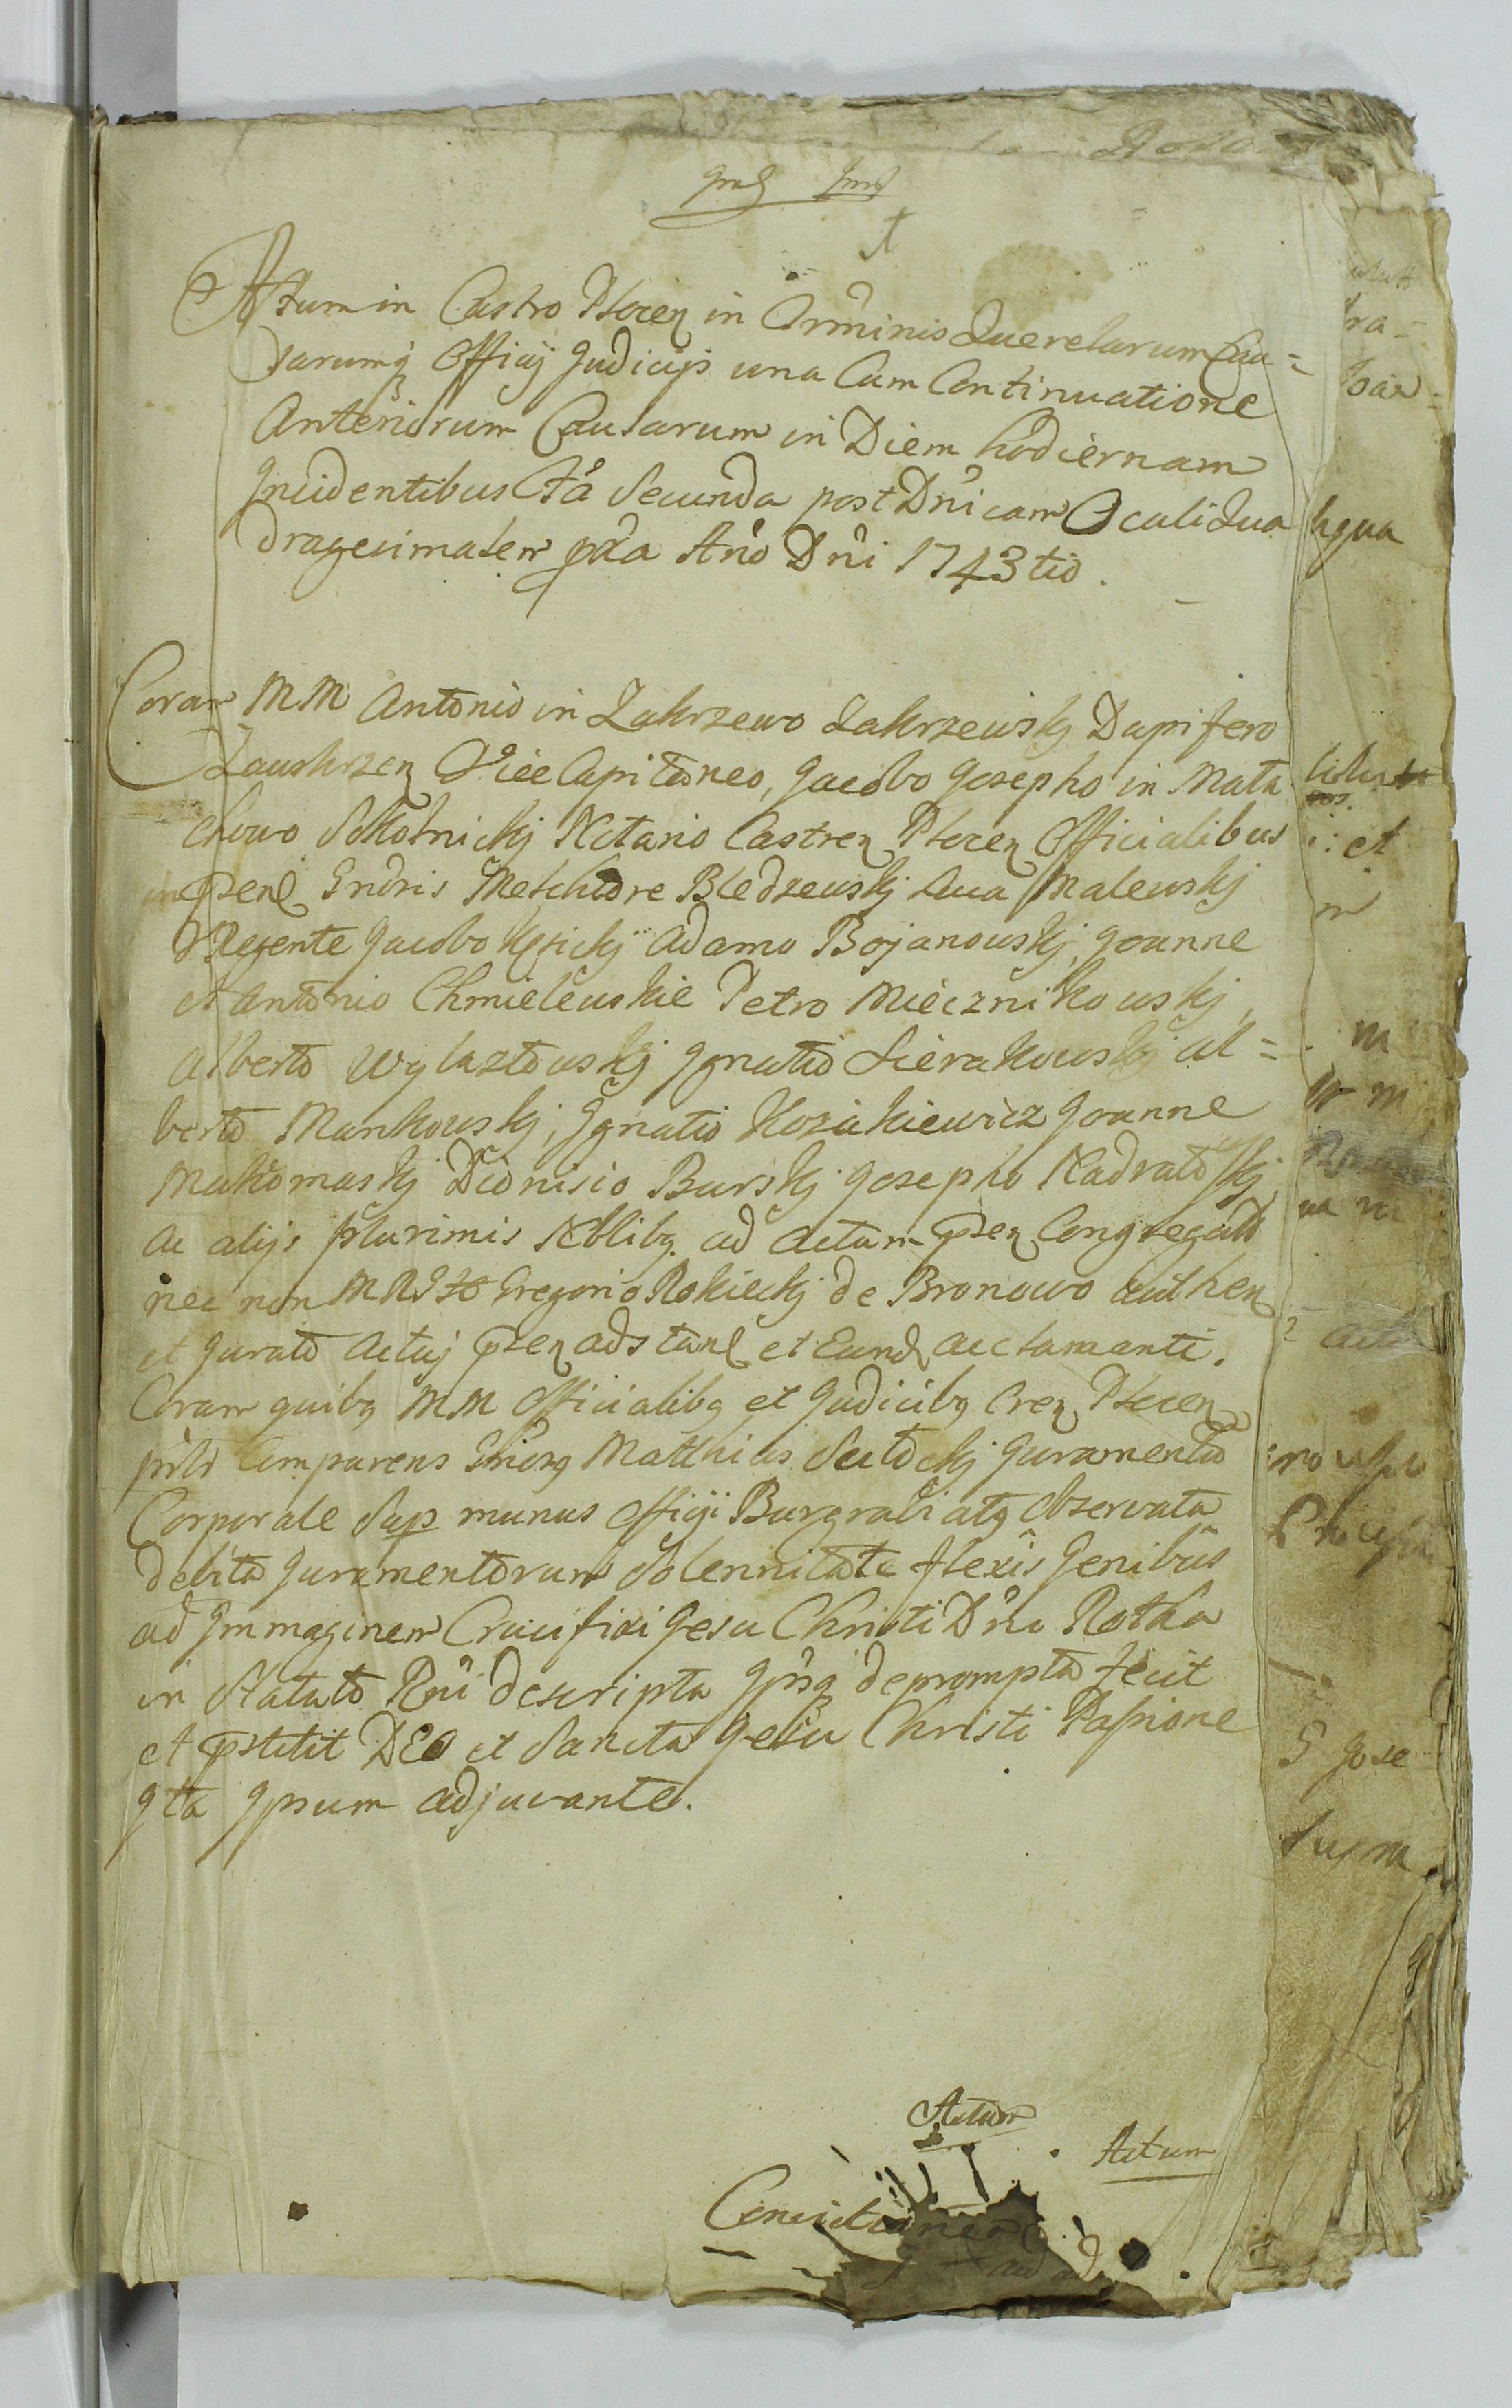 Actum in Castro Plocen in Crminis Querelarum Cau=
sarumq Officij Judicijs una Cum Continuatione
Anteriorum Causarum in Diem hodiernam
Incidentibus Fa Secunda post Dnicam Oculi Qua
dragesimalem pxa Ano Dni 1743tio.
Coram MM Antonio in Zakrzewo Zakrzewskj Dapifero
Zauskrzen Vice Capitaneo, Jacobo Josepho in Mała
chowo Sokolnickj Notario Castren Plocen Officialibus
in Psens Gndris Melchiore Bledzewskj Luca Malewskj
VRegente Jacobo Kęsickj Adamo Bojanowskj, Joanne
et Antonio Chmielewskie Petro Miecznikowskj,
Alberto Wylaztowskj Ignatio Sierakowskj Al=
berto Mankowskj, Ignatio Kozakiewicz Joanne
Makomaskj Dionisio Burskj Josepho Nadratowskj
ac alijs plurimis Nobilibq ad Actum psen Congregatis
nec non Gregorio Rokickj de Bronowo authen
et Jurato Actuj psen adstans et Eund acclamanti.
Coram quibq MM Officialibq et Judicibq Cren Plocen
prls Comparens Gnosq Matthias Sutockj Juramento
Corporale Sup munus Officij Burgrabiatq Observata
debita Juramentorum Solennitate flexis Genibus
ad Immaginem Crucifixi Jesu Christi Dni Rotha
in Statuto Rni descripta Ipsq deprompta fecit
et pstitit DEO et Sancta Jesu Christi Passione
qta Ipsum adjuvante.
Actum
Actum